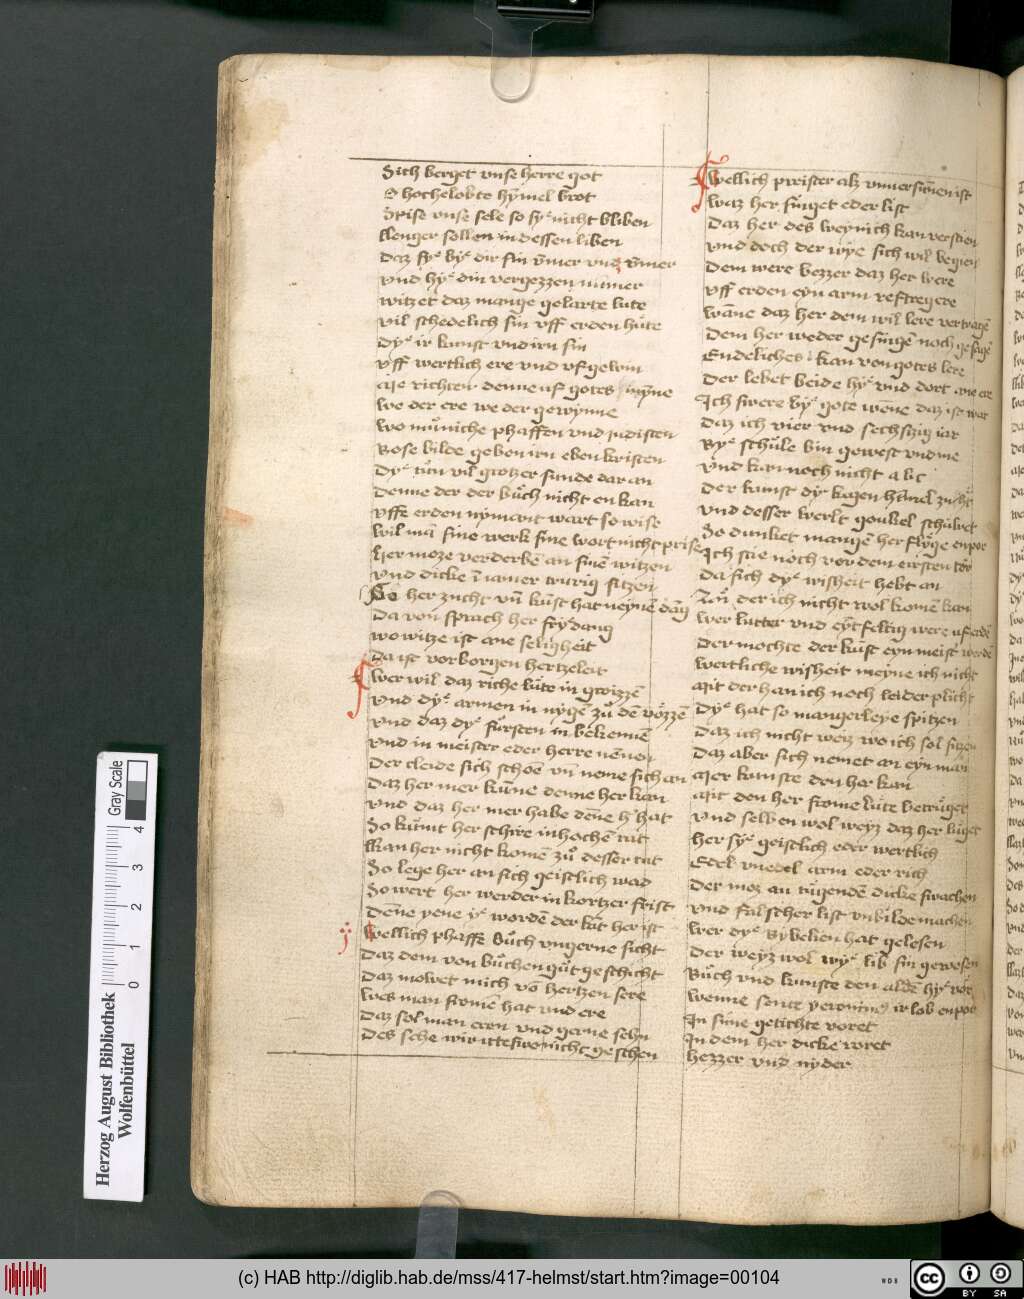 Sich berget vnse herre got
O hochelobte hymel brot
Spise vnse sele so sye nicht bliben
llenger sollen in dessen liben
Daz sye bye dir sin ymer vnd ymer
Vnd hye din vergezzen nimer
Witzet daz mange gelarte lute
Vil schedelich sin vff erden hute
Dye ir kunst vnd irn sin
Vff wertlich ere vnd vf gewin
Me richten denne uf gotes mynne
We der ere we der gewynne
Wo muniche phaffen vnd
Bose bilde geben irn eben kristen
Dye tun vil grozer sunde dar an
Denne der der buch nicht en kan
Vffe erden nymant wart so wise
Wil man sine werk sine wort nicht prise
Her moze verderben an sinen witzen
Vnd dicke in iamer trurig sitzen
So her zucht vn kunst hat neynen dang
Da von sprach her frydang
Wo witze ist ane seligheit
Da ist vorborgen hertzeleit
Wer wil daz riche lute in grozzen
Vnd dye armen in nygen zu den vozzen
Vnd daz dye fursten in bekennen
Vnd in meister eder herre nennen
Der cleide sich schone vn neme sich an
Daz her mer kunne denne her kan
Vnd daz her mer habe denne h hat
So kumt her schire in hochen rat
Man her nicht komen zu desser tat
So lege her an sich geistlich wad
So wert her werder in kortzer frist
Denne yene ye worden der kat her ist
Wellich phaffe buch vngerne sicht
Daz dem von buchen gut geschicht
Daz mowet mich von hertzen sere
Wes man fromen hat vnd ere
Daz sol man eren vnd gerne sehn
Des sehe wir nicht geschen
Wellich prister alz vnuersunnen ist
Waz her singet eder list
Daz her des weynich kan verstien
Vnd doch der wye sich wil begien
Dem were bezzer daz her were
Vff erden eyn arm
Wanne daz her dem wil lere vertragen
Dem her weder gesingen noch gesagen
Endeliches kan von gotes lere
Der lebet beide hye vnd dort ane ere
Ich swere bye gote wenne daz ist war
Daz ich vier vnd sechszig iar
Bye schule bin gowest vnd me
Vnd kan noch nicht a b c
Der kunst dye kegen himel zuhet
Vnd desser werlt goukel schuwet
So dunket mangen her flyge enpor
Ich stie noch vor dem eirsten tor
Da sich dye wisheit hebt an
Zu der ich nicht wol komen kan
Wer lutter vnd eynfeltig were uf erden
Der mochte der kunst eyn meister werden
Wertliche wisheit meyne ich nicht
Mit der han ich noch leider plicht
Dye hat so mangerleye spitzen
Daz ich nicht weiz wo ich sol sitzen
Daz aber sich nemet an eyn man
Mer kunste den her kan
Mit den her frome lute betruget
Vnd selben wol weyz daz her luget
Her sye geistlich eder wertlich
Edel vnedel arm eder rich
Der moz an tugenden dicke swachen
Vnd falscher list vnbilde machen
Wer dye bybelien hat gelesen
Der weyz wol wye lib sin gewesen
Buch vnd kunste den alden hye vor
Wenne sente yeronimus ir lob enpor
In sime getichte voret
In dem her dicke roret
Hezzer vnd nyder
Herzog August Bibliothek
Wolfenbüttel
0 1 2 3 4
Gray Scale
(c) HAB http://diglib.hab.de/mss/417-helmst/start.htm?image=00104
WDB
cc
BY SA